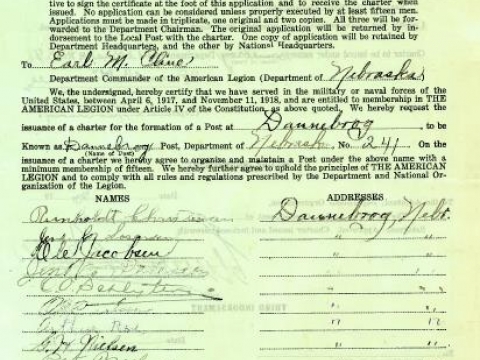 tive to sign the certificate at the foot of this application and to receive the charter when
issued. No application can be considered unless properly executed by at least fifteen men.
Applications must be made in triplicate, one original and two copies. All three will be for-
warded to the Department Chairman. The original application will be returned by in-
dorsement to the Local Post with the charter. One copy of application will be retained by
Department Headquarters, and the other by National Headquarters.
To Earl M. Cline
Department Commander of the American Legion (Department of Nebraska)
We, the undersigned, hereby certify that we have served in the military or naval forces of the
United States, between April 6, 1917, and November 11, 1918, and are entitled to membership in THE
AMERICAN LEGION under Article IV of the Constitution, as above quoted, We hereby request the
issuance of a charter for the formation of a Post at Dannebrog, to be
Known as Dannebrog Post, Department of Nebraska No. 241 On the
(Name of Post)
issuance of a charter we hereby agree to organize and maintain a Post under the above name with a
minimum membership of fifteen. We hereby further agree to uphold the principles of THE AMERICAN
LEGION and to comply with all rules and regulations prescribed by the Department and National Or-
ganization of the Legion.
NAMES ADDRESSES
Dannebrog, Nebr.
Ole Jacobsen " "
" "
" "
" "
" "
Nielsen " "